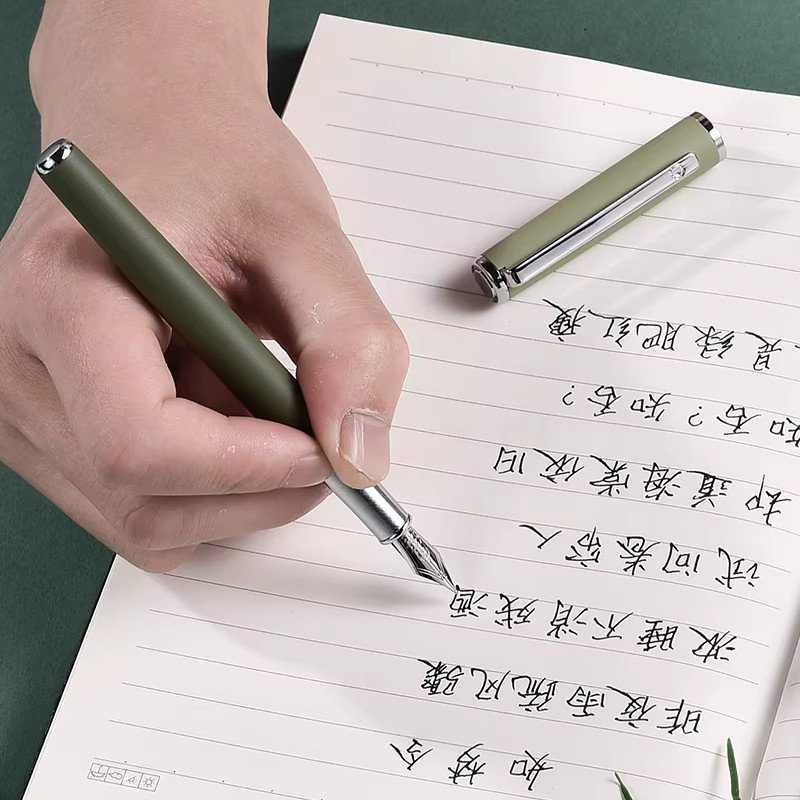 如梦令
昨夜雨疏风骤
浓睡不消残酒
试问卷帘人
却道海棠依旧
知否？知否？
是绿肥红瘦